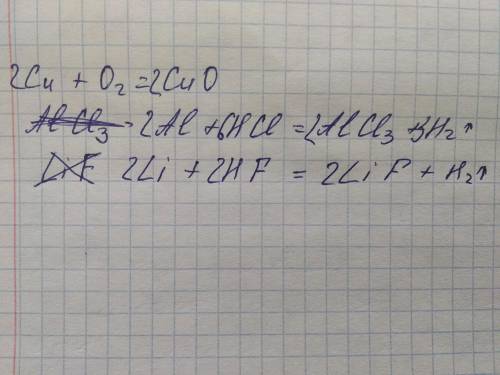 2Cu + O₂ = 2CuO
AlCl₃ 2Al + 6HCl = 2AlCl₃ + 3H₂↑
LiF 2Li + 2HF = 2LiF + H₂↑